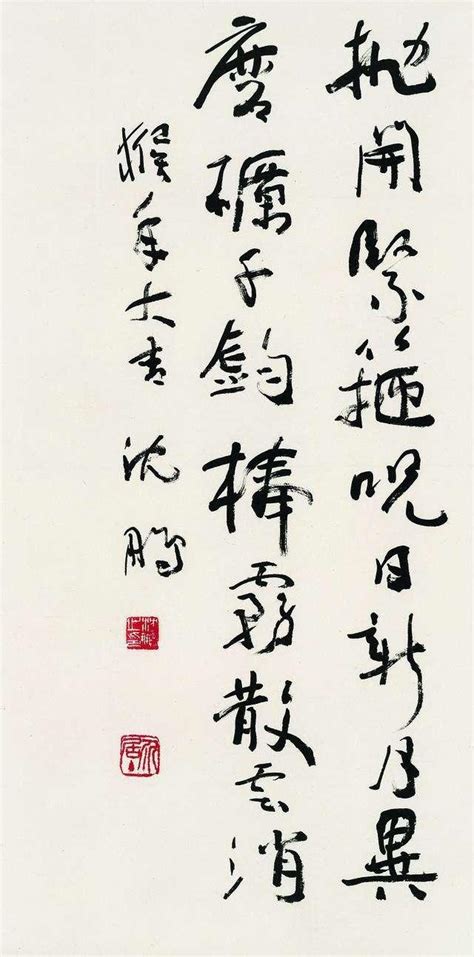 抛開緊箍咒日新月異
磨礪千鈞棒霧散云消
猴年大吉 沈鵬